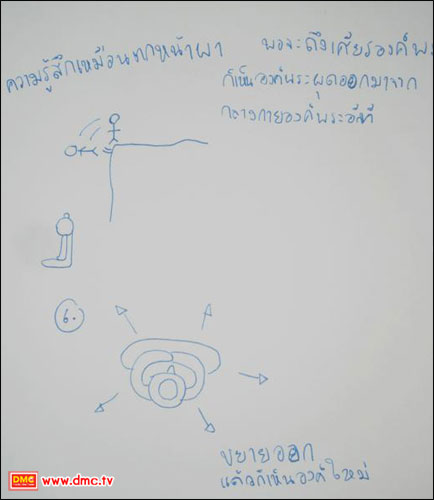 ความรู้สึกเหมือนตกหน้าผา
พอจะถึงเศียรองค์พระ
ก็เห็นองค์พระผุดออกมาจาก
กลางกายองค์พระอีกที
๖.
ขยายออก
แล้วก็เห็นองค์ใหม่
DMC www.dmc.tv